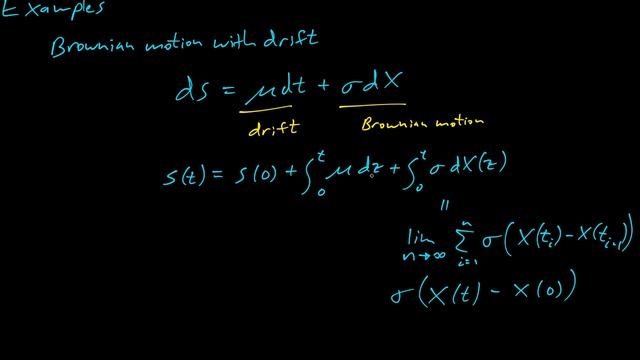 Examples
Brownian motion with drift
ds = μdt + σdX
drift Brownian motion
s(t) = s(0) + ∫₀ᵗ μdz + ∫₀ᵗ σdX(z)
||
lim n→∞ Σ i=1 n σ(X(tᵢ) - X(tᵢ₋₁))
σ(X(t) - X(0))